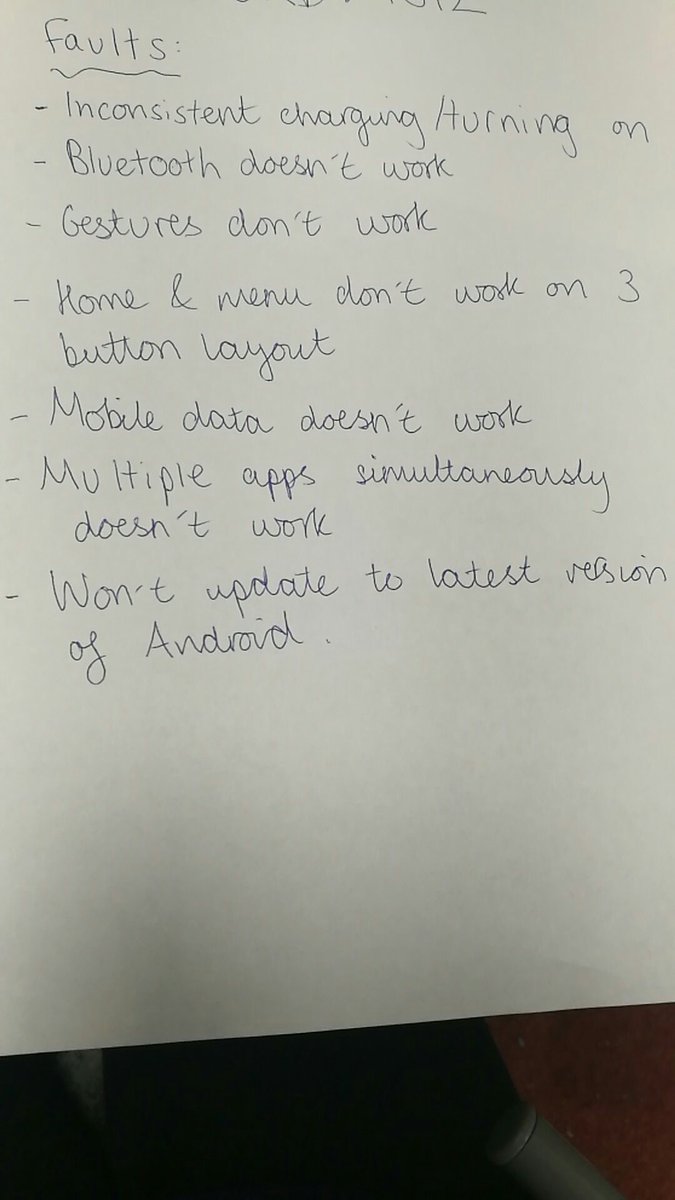 Faults:
- Inconsistent charging/turning on
- Bluetooth doesn't work
- Gestures don't work
- Home & menu don't work on 3
button layout
- Mobile data doesn't work
- Multiple apps simultaneously
doesn't work
- Won't update to latest version
of Android.